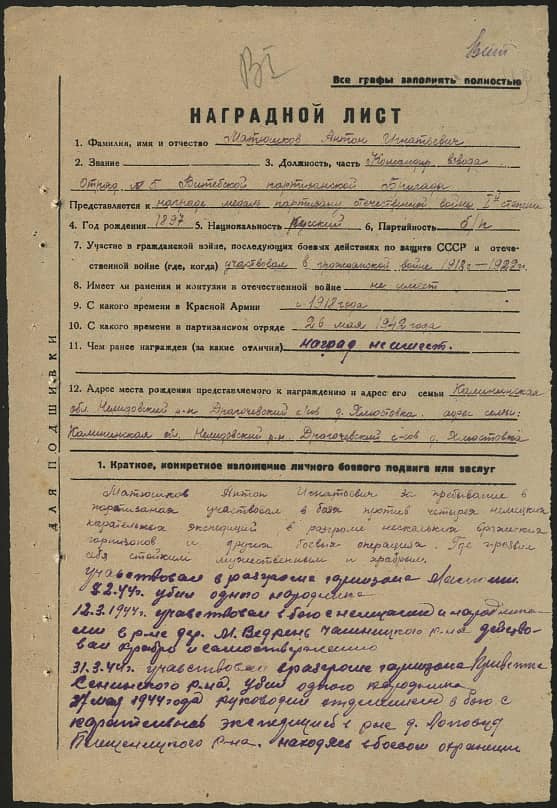 ВI
Все графы заполнять полностью
НАГРАДНОЙ ЛИСТ
1. Фамилия, имя и отчество Матюшков Антон Игнатьевич
2. Звание 3. Должность, часть Командир взвода
Отряд №5 Витебской партизанской бригады
Представляется к награде медаль партизану отечественной войны I й степени
4. Год рождения 1897 5. Национальность русский 6. Партийность б/п
7. Участие в гражданской войне, последующих боевых действиях по защите СССР и отече-
ственной войне (где, когда) участвовал в гражданской войне 1918г – 1922г.
8. Имеет ли ранения и контузии в отечественной войне не имеет
9. С какого времени в Красной Армии с 1918 года
10. С какого времени в партизанском отряде 26 мая 1942 года
11. Чем ранее награжден (за какие отличия) наград не имеет.
12. Адрес места рождения представляемого к награждению и адрес его семьи Калининская
обл. Нелидовский р-н Драгочевский с-сов д. Хмостовка. адрес семьи:
Калининская обл. Нелидовский р-н. Драгочевский с-сов д. Хмостовка
ДЛЯ ПОДШИВКИ
1. Краткое, конкретное изложение личного боевого подвига или заслуг
Матюшков Антон Игнатьевич за пребывание в
партизанах участвовал в боях против четырех немецких
карательных экспедиций, в разгроме нескольких вражеских
гарнизонов и других боевых операциях. Где проявил
себя стойким мужественным и храбрым.
участвовал в разгроме гарнизона
8.2.44г. убил одного народника
12.3.1944г. участвовал в бою с немцами и народника-
ми в р-не дер. М. Ведрень Чашницкого р-на. действо-
вал храбро и самоотверженно
31.3.44г. участвовал в разгроме гарнизона
Сенненского р-на. убил одного народника.
мая 1944 года руководил отделением в бою с
карательной экспедицией в р-не д.
Плещеницкого р-на. находясь в боевом охранении